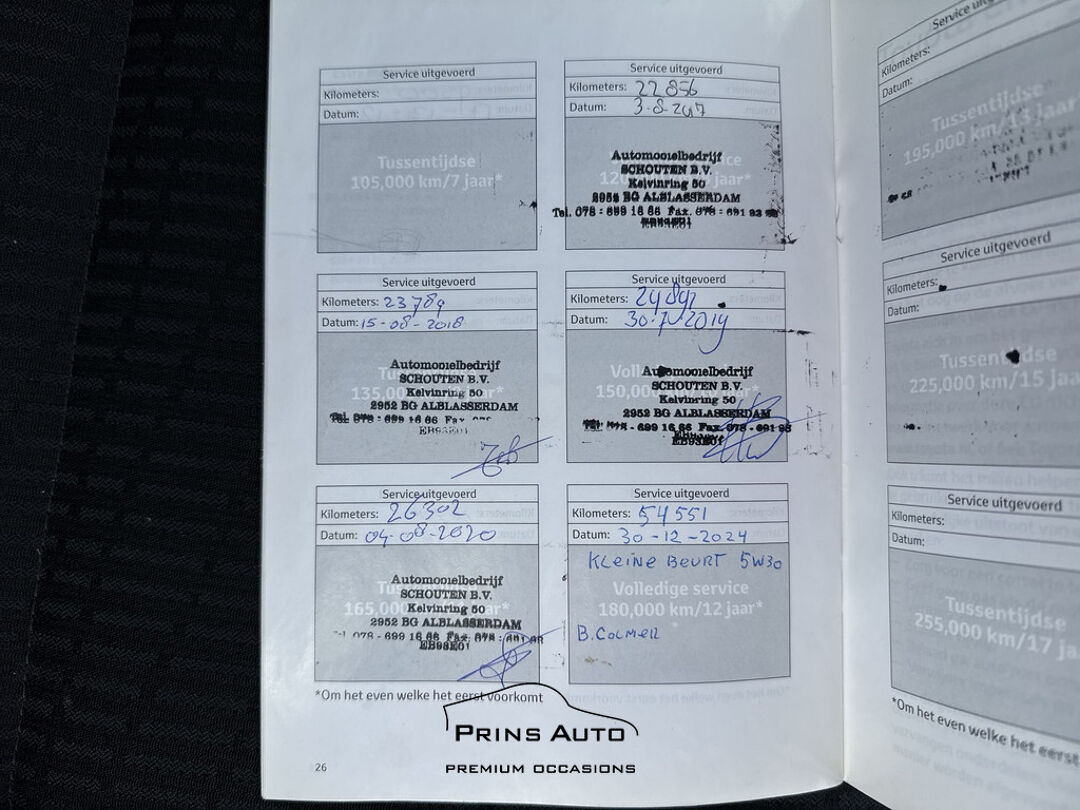 Service uitgevoerd
Kilometers:
Datum:
Tussentijdse
105,000 km/7 jaar*
Service uitgevoerd
Kilometers: 22856
Datum: 3-8-2017
Automobielbedrijf
SCHOUTEN B.V.
Kelvinring 50
2952 BG ALBLASSERDAM
Tel. 078 - 699 16 66 Fax. 078 - 691 93
Service uitgevoerd
Kilometers: 23789
Datum: 15-08-2018
Automobielbedrijf
SCHOUTEN B.V.
Kelvinring 50
2952 BG ALBLASSERDAM
Tel. 078 - 699 16 66 Fax
EB93E01
Service uitgevoerd
Kilometers:
Datum: 30-7-2019
150,000
Automobielbedrijf
SCHOUTEN B.V.
Kelvinring 50
2952 BG ALBLASSERDAM
- 699 16 66 Fax. 078 - 691 93
EB93E01
Service uitgevoerd
Kilometers: 26302
Datum: 04-08-2020
165,000
Automobielbedrijf
SCHOUTEN B.V.
Kelvinring 50
2952 BG ALBLASSERDAM
078 - 699 16 66 Fax. 078
EB93E01
Service uitgevoerd
Kilometers: 54551
Datum: 30-12-2024
KLEINE BEURT 5W30
Volledige service
180,000 km/12 jaar*
B. COLMER
*Om het even welke het eerst voorkomt
26
Service uitgevoerd
Kilometers:
Datum:
Tussentijdse
195,000 km/13 jaar
Service uitgevoerd
Kilometers:
Datum:
225,000 km/15
Service uitgevoerd
Kilometers:
Datum:
Tussentijdse
255,000 km/17
*Om het even welke het eerst
PRINS AUTO
PREMIUM OCCASIONS